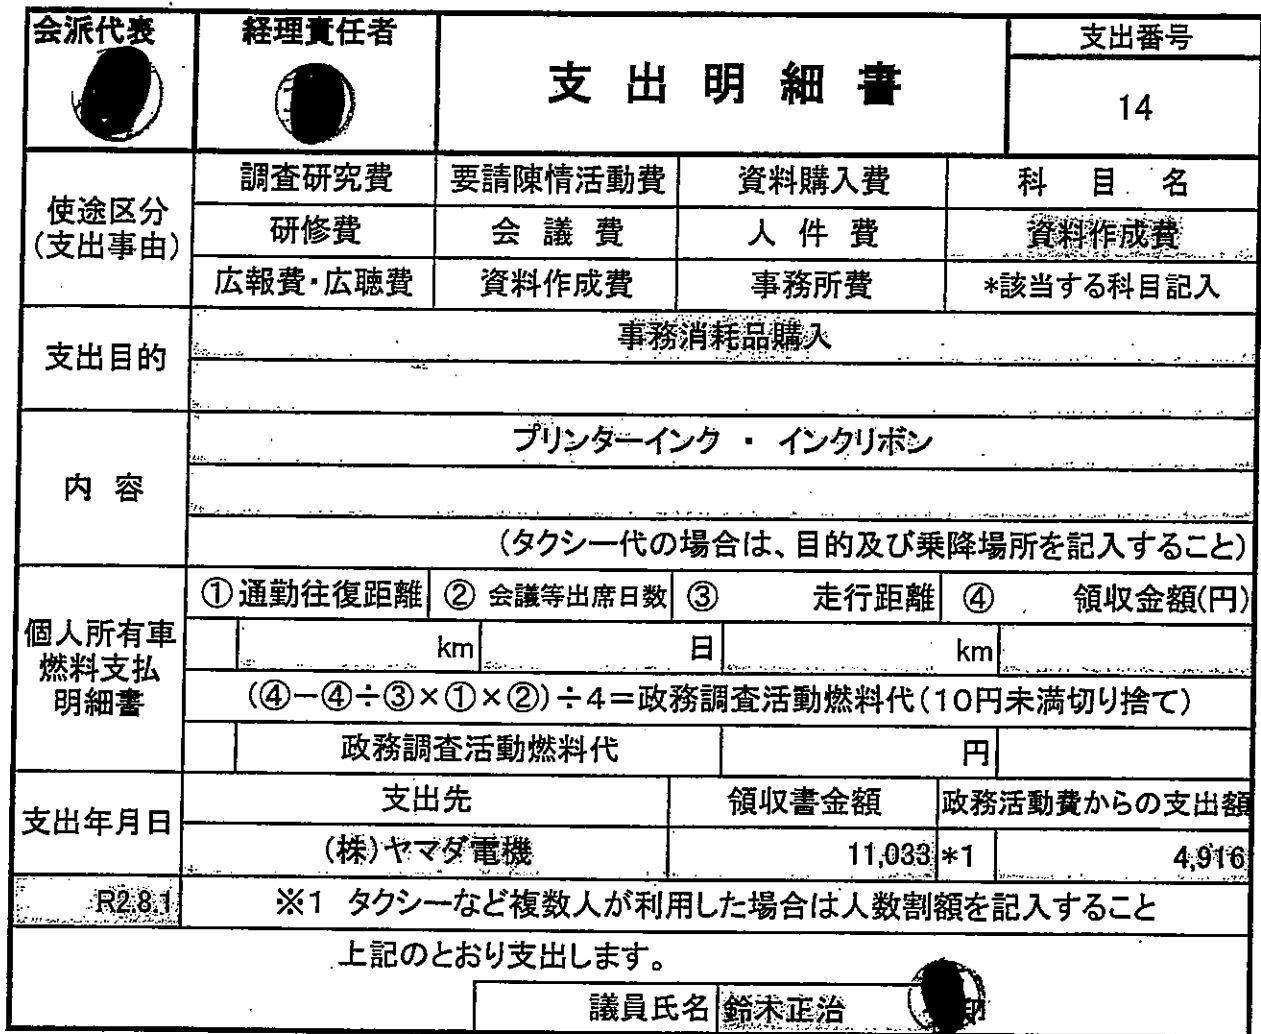 会派代表 経理責任者 支出明細書 支出番号
14
使途区分
(支出事由)
調査研究費 要請陳情活動費 資料購入費 科目名
研修費 会議費 人件費 資料作成費
広報費・広聴費 資料作成費 事務所費 *該当する科目記入
支出目的 事務消耗品購入
内容 プリンターインク ・ インクリボン
(タクシー代の場合は、目的及び乗降場所を記入すること)
個人所有車
燃料支払
明細書
①通勤往復距離 ② 会議等出席日数 ③ 走行距離 ④ 領収金額(円)
km 日 km
(④-④÷③×①×②)÷4=政務調査活動燃料代(10円未満切り捨て)
政務調査活動燃料代 円
支出年月日 支出先 領収書金額 政務活動費からの支出額
(株)ヤマダ電機 11,033 *1 4,916
R2.8.1 ※1 タクシーなど複数人が利用した場合は人数割額を記入すること
上記のとおり支出します。
議員氏名 鈴木正治 印